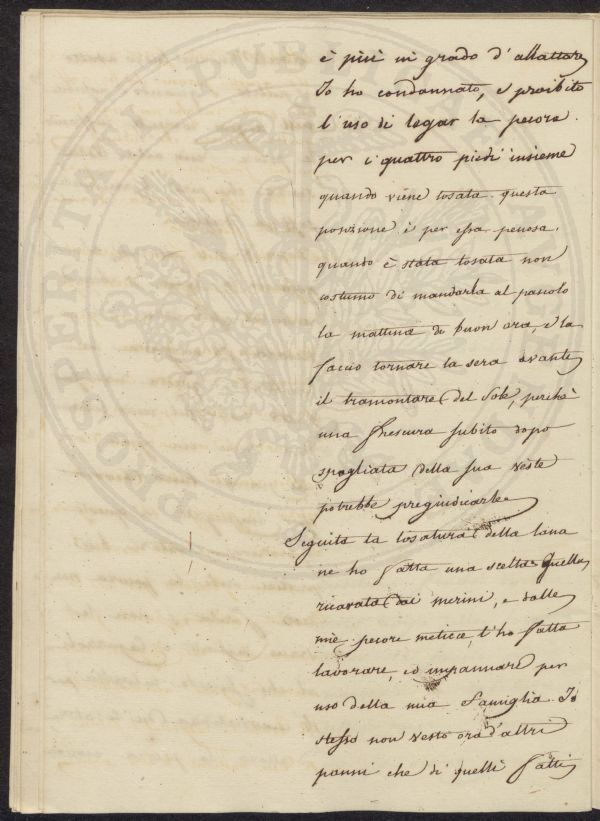 è più in grado d'allattare
Io ho condannato, e proibito
l'uso di legar la pecora
per i quattro piedi insieme
quando viene tosata. questa
posizione è per essa penosa.
quando è stata tosata non
costumo di mandarla al pascolo
la mattina di buon ora, e la
faccio tornare la sera avanti
il tramontare del Sole, perchè
una frescura subito dopo
spogliata della sua veste
potrebbe pregiudicarle.
Seguita la tosatura della lana
ne ho fatta una scelta. Quella
ricavata dai merini, e dalle
mie pecore meticce, l'ho fatta
lavorare, ed impannare per
uso della mia Famiglia. Io
stesso non vesto ora d'altri
panni che di quelli fatti
PROSPERITATI PUBLICAE